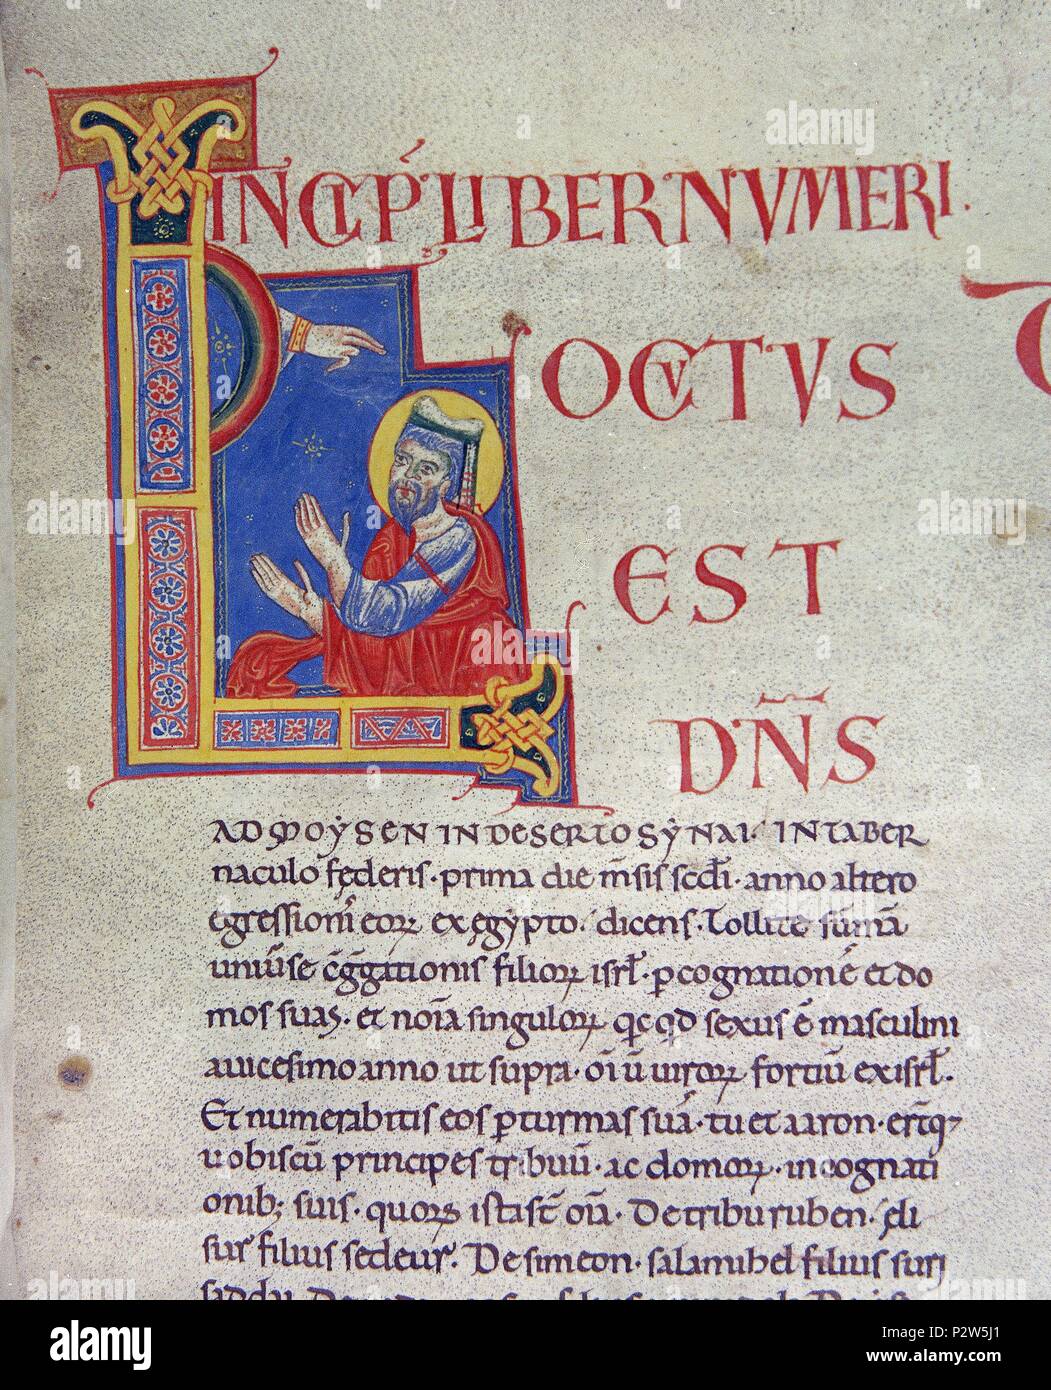 INCIP̄ LIBER NVMERI.
LOCVTVS
EST
DN̄S
AD MOYSEN IN DESERTO SẎNAI. IN TABER
naculo fęderis · prima die m̄sis scđi · anno altero
egressionis eoꝝ ex ęgẏpto. dicens. Tollite sūmā
uniu̅se c̄g̅gationis filioꝝ isrł · ꝑ cognationē et do
mos suas · et nōīa singuloꝝ qc̨qd sexus ē masculini
auicesimo anno ut supra · oīū uiroꝝ fortiū exisrł.
Et numerabitis eos ꝑ turmas suā · tu et aaron · eruntq;
uobiscū principes tribuū · ac domoꝝ · in cognati
onib; suis · quorꝝ ista st̄ oīā · De tribu ruben · eli
sur filius sedeur. De simeon · salamihel filius suri
alamy
alamy
Image ID: 2W5J1
www.alamy.com